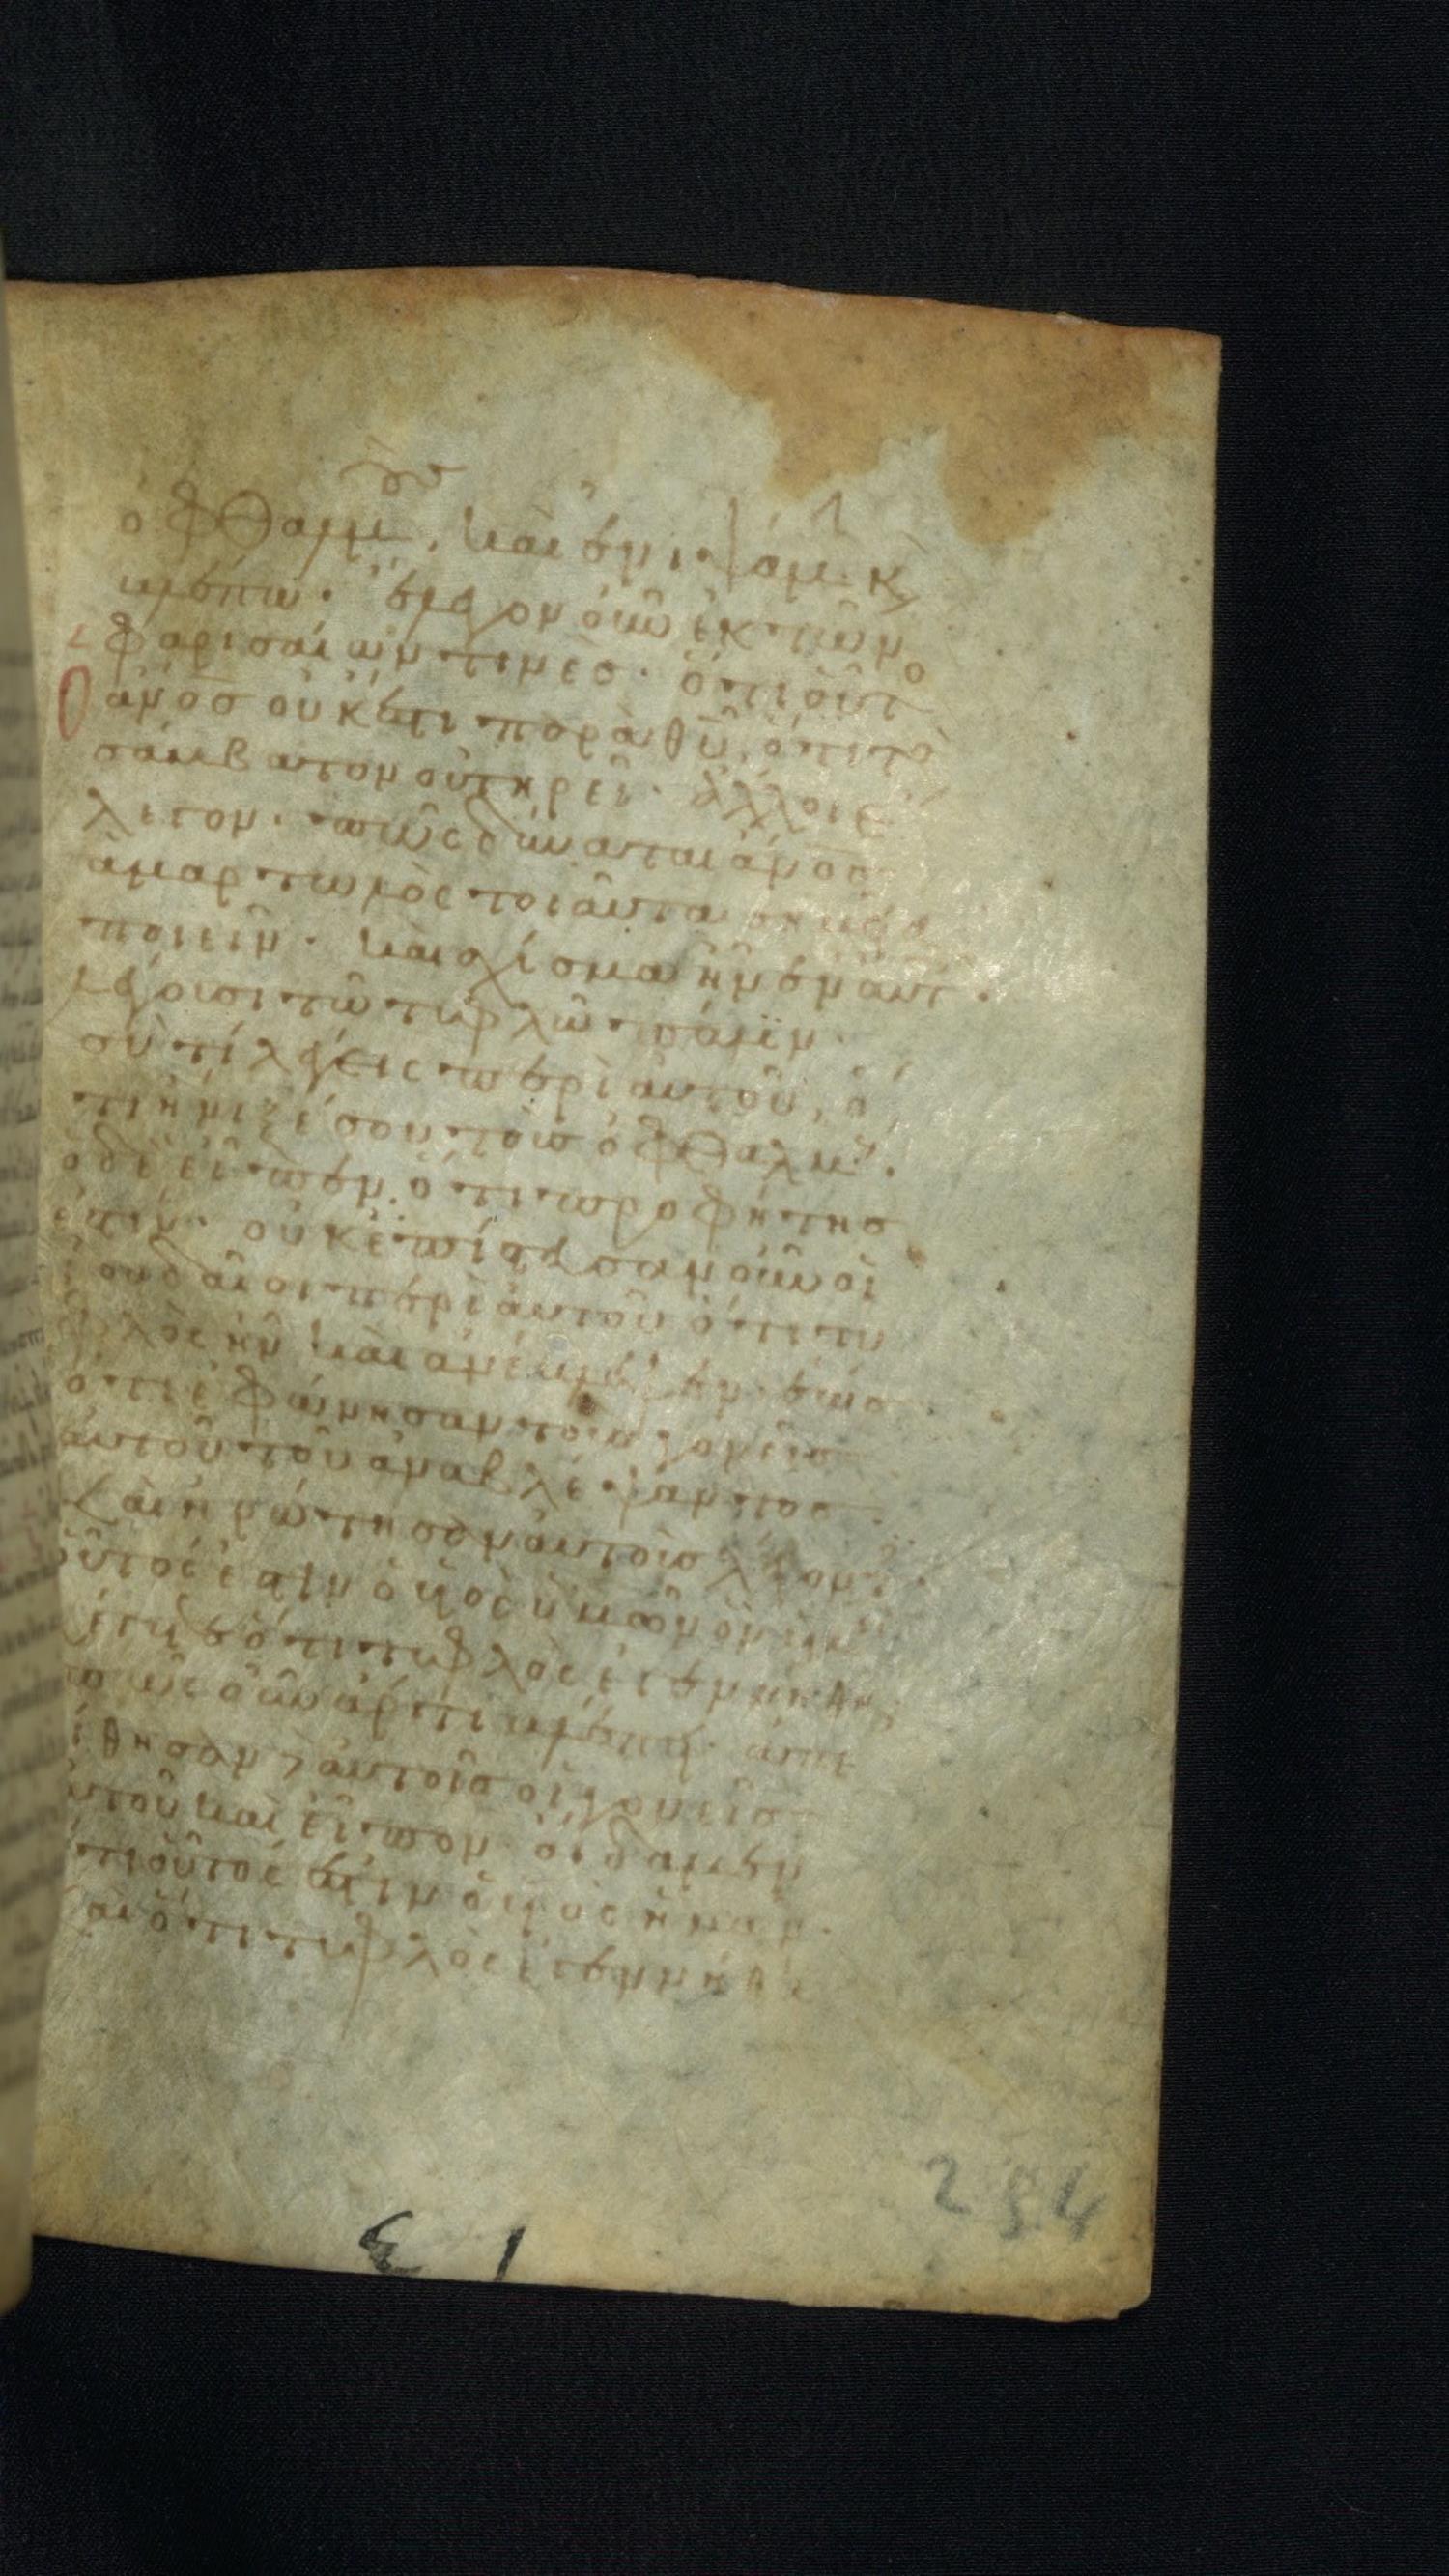 ὀφθαλμοὺς, καὶ ἐνιψάμ κ,
βλέπω. ἔλεγον οὖν ἐκ τῶν
φαρισαίων τινὲσ. ὅτι οὗτο
ἀνοσ οὐκ ἔστι παρὰ θῦ, ὅτι τὸ
σάμβατον οὐ τηρεῖ. ἄλλοι ἔ
λεγον. πῶς δύναται ἀνοσ
ἁμαρτωλὸς τοιαῦτα σημεῖα
ποιεῖν. καὶ σχίσμα ἦν ἐν αυτ.
λέγουσι τῶ τυφλῶ πάλϊν.
σὺ τί λέγεις περὶ αυτοῦ, ὅ
τι ἤνιξέ σου τοὺσ ὀφθαλμ.
ὁ δὲ εἶπεν. ὅτι προφήτησ
ἐστιν. οὐκ ἐπίστευσαν οὖν οἱ
ἰουδαῖοι περὶ αυτοῦ ὅτι τυ
φλὸς ἦν καὶ ἀνέβλεψεν. ἕωσ
ὅτε ἐφώνησαν τοὺσ γονεῖσ
αυτοῦ τοῦ ἀναβλέψαντοσ.
Καὶ ἠρώτησαν αυτοὺσ λέγοντ.
οὗτός ἐστιν ὁ υἱὸς ὑμῶν ὃν ὑμεῖσ
λέγετε ὅτι τυφλὸς ἐγεννήθη.
πῶς οὖν ἄρτι βλέπει. ἀπε
κρίθησαν αυτοῖσ οἱ γονεῖσ
αυτοῦ καὶ εἶπον. οἴδαμεν
ὅτι οὗτός ἐστιν ὁ υἱὸς ἡμῶν.
καὶ ὅτι τυφλὸς ἐγεννήθη
254
31